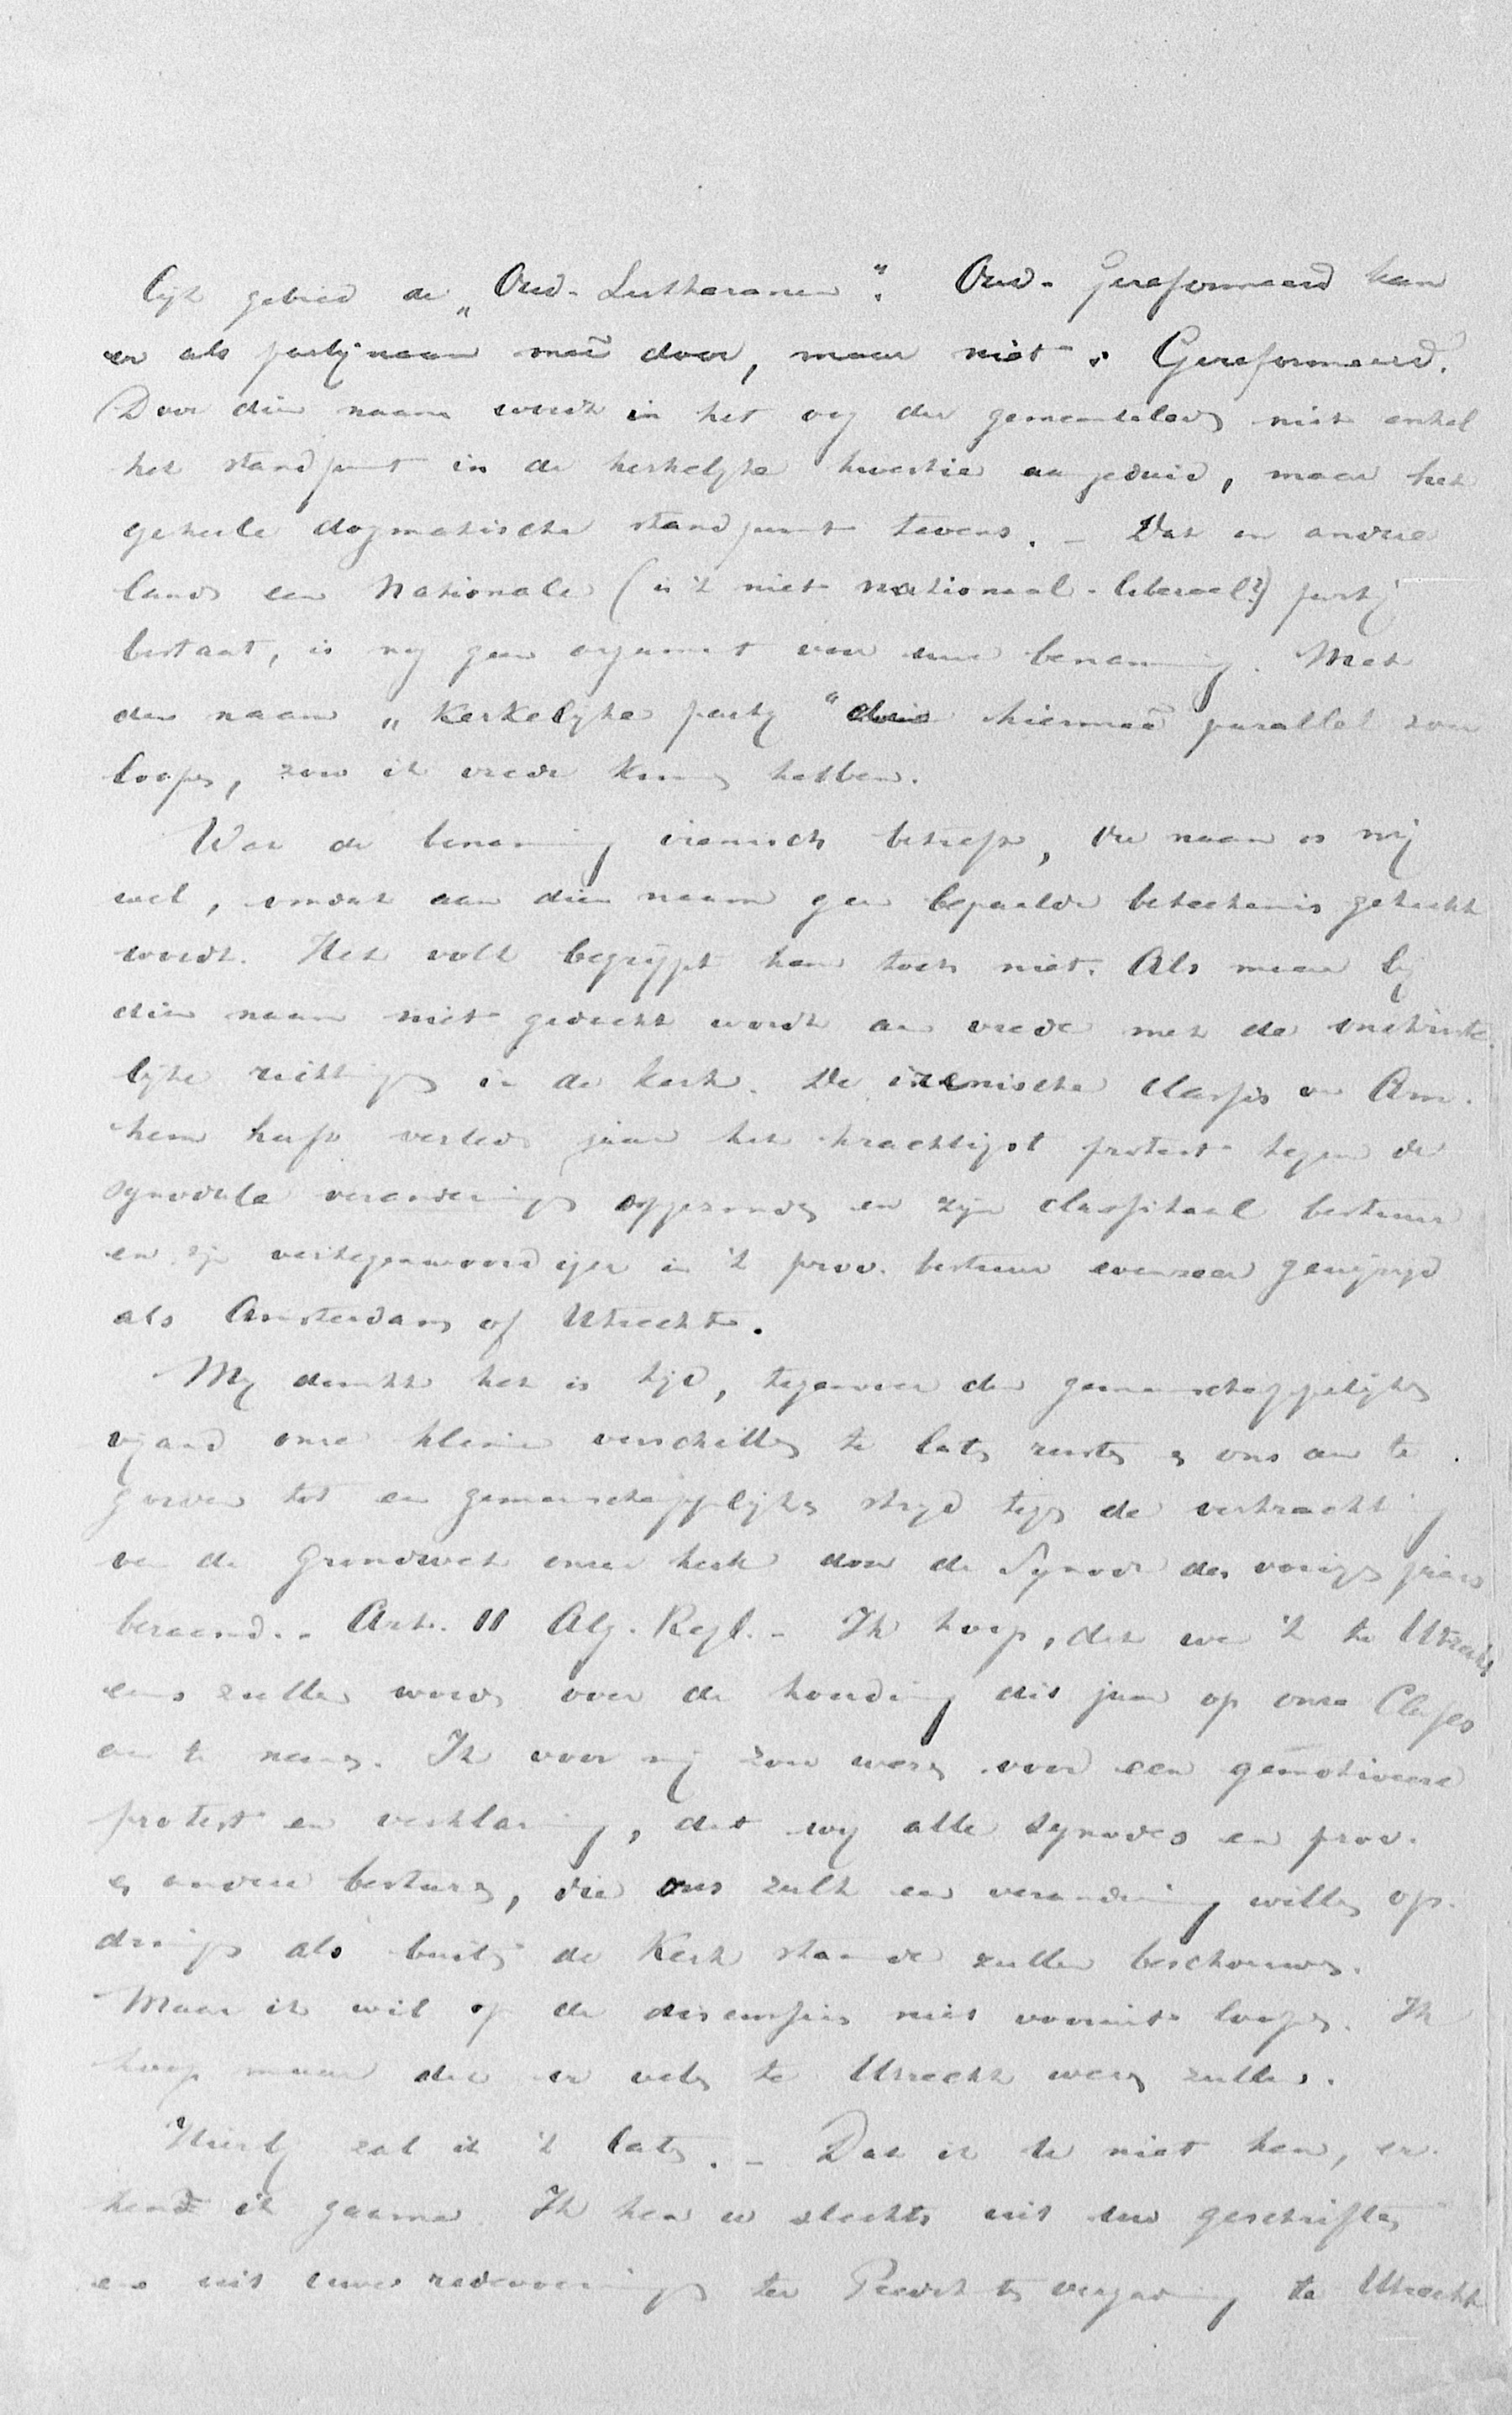 lijk gebied de „Oud-Lutheranen". Oud-Gereformeerd kan
er als partijnaam meê door, maar niet: Gereformeerd.
Door dien naam wordt in het oog der gemeenteleden niet enkel
het standpunt in de kerkelijke kwestie aangeduid, maar het
geheele dogmatische standpunt tevens. – Dat in andere
landen een Nationale (is 't niet nationaal-liberael?) partij
bestaat, is mij geen argument voor uwe benaming. Met
den naam „Kerkelijke partij" die hiermeê parallel zou
loopen, zou ik vrede kunnen hebben.
Wat de benaming irenisch betreft, die naam is mij
wel, omdat aan dien naam geen bepaalde beteekenis gehecht
wordt. Het volk begrijpt hem toch niet. Als maar bij
dien naam niet gedacht wordt aan vrede met de onchriste-
lijke richtingen in de kerk. De irenische classis van Arn-
hem heeft verleden jaar het krachtigst protest tegen de
synodale veranderingen opgezonden en zijn classicaal bestuur
en zijn vertegenwoordiger in 't prov. bestuur evenzeer gewijzigd
als Amsterdam of Utrecht.
Mij dunkt het is tijd, tegenover den gemeenschappelijken
vijand onze kleine verschillen te laten rusten en ons aan te
gorden tot een gemeenschappelijken strijd tegen de verkrachting
van de grondwet onzer kerk door de Synode des vorigen jaars
beraamd. – Art. 11 Alg. Regl. – Ik hoop, dat we 't te Utrecht
eens zullen worden over de houding dit jaar op onze Classes
aan te nemen. Ik voor mij zou wezen voor een gemotiveerd
protest en verklaring, dat wij alle synodes en prov.
en andere besturen, die ons zulk een verandering willen op-
dringen als buiten de Kerk staande zullen beschouwen.
Maar ik wil op de discussies niet vooruit loopen. Ik
hoop maar dat er velen te Utrecht wezen zullen.
Hierbij zal ik 't laten. – Dat ik u niet ken, er-
kend ik gaarne. Ik ken u slechts uit uw geschriften
en uit uwe redevoeringen ter Predikanten vergadering te Utrecht